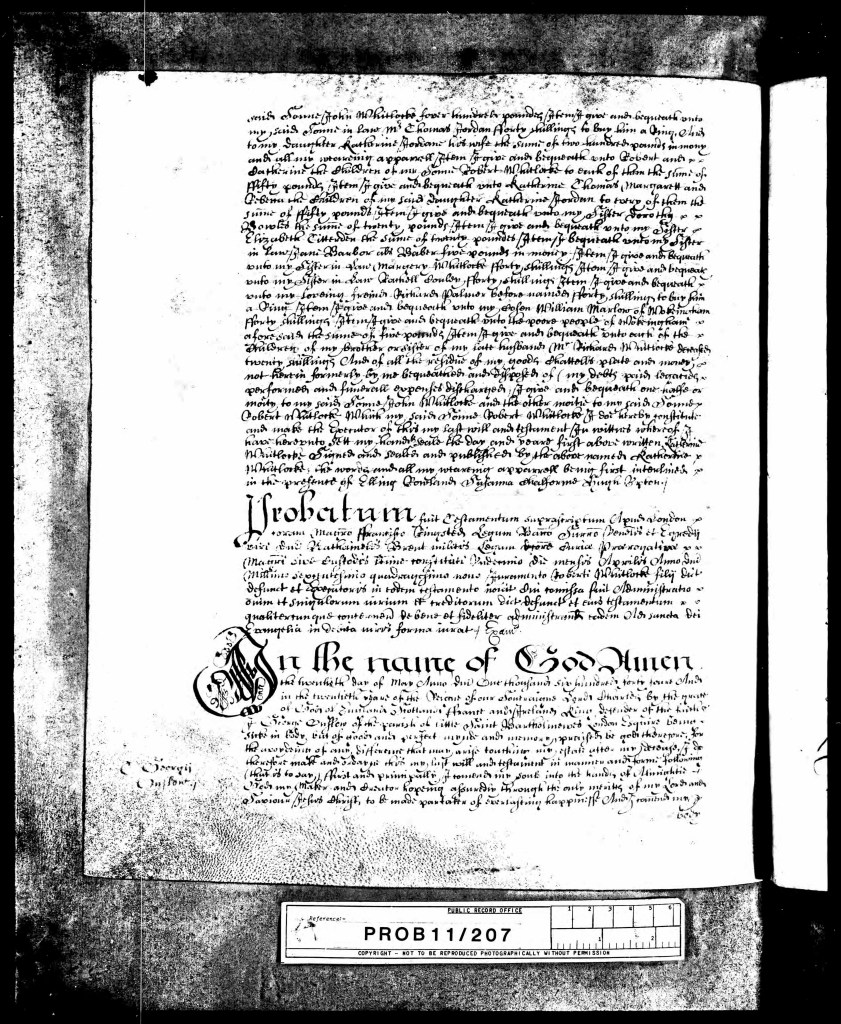 said Sonne John Whitlocke fower hundred poundes Item I give and bequeath unto
my said Sonne in lawe Mr Thomas Jordan fforty shillings to buy him a Ring And
to my daughter Katherine Jordane his wife the some of two hundred pounds in mony
and all my weareing apparrell Item I give and bequeath unto Robert and
Catherine the Children of my Sonne Robert Whitlocke to each of them the some of
ffifty poundes Item I give and bequeath unto Katherine Thomas Margarett and
the Children of my said daughter Katherine Jordan to every of them the
some of ffifty pounds Item I give and bequeath unto my Sister Dorothy
Bowles the some of twenty pounds Item I give and bequeath unto my Sister
Elizabeth the some of twenty poundes Item I bequeath unto my Sister
in lawe Jane Barbor als Baber five pounds in money Item I give and bequeath
unto my Sister in law Margery Whitlocke fforty shillings Item I give and bequeath
unto my Sister in law Rachell fforty shillings Item I give and bequeath
unto my loveing freind Richard Palmer before named fforty shillings to buy him
a Ring Item I give and bequeath unto my Cosen William Marlow of Wokeingham
fforty shillings Item I give and bequeath unto the poore people of Wokeingham
aforesaid the some of five pounds Item I give and bequeath unto each of the
Children of my brother or sister of my late husband Mr Richard Whitlocke deceased
twenty shillings And of all the residue of my goods Chattells plate and money
not herein formerly by me bequeathed and disposed of (my debts paid legacies
performed and funerall expenses discharged) I give and bequeath one halfe or
moity to my said Sonne John Whitlocke and the other moitie to my said Sonne
Robert Whitlocke Which my said Sonne Robert Whitlocke I doe hereby constitute
and make the Executor of this my last will and testament In wittnes whereof I
have hereunto sett my hand & seale the day and yeare first above written Katherine
Whitlocke Signed and sealed and published by the above named Katherine
Whitlocke, the words and all my weareing apparrell being first interlined
in the presence of Elling Rowland Susanna Hugh Upton
Probatum fuit Testamentum suprascriptum Apud London
coram Magro Francisco Legum Egregij
viri Dni Nathanielis Brent militis Legum Curie Prerogative
Magri sive Custodis time constituti die mensis Aprilis Anno dni
Millimo sexcentesimo quadragesimo nono Juramento Roberti Whitlocke filij dict
defunct et Executoris in eodem testamento noiat Cui comissa fuit Administratio
oium et singulorum iurium et creditorum dict defunct et eius testamentum
qualitercunque De bene et fideliter administrand eadem Ad sancta dei
Evangelia in debita iuris forma iurat Exam
In the name of God Amen
the twentieth day of May Anno dni One thousand six hundred forty And
in the twentieth yeare of the Reigne of our Soveraigne Lord Charles by the grace
of God of England Scotland France and Ireland King defender of the faith
I George Onslow of the parish of little Saint Bartholmewes London Esquire being
sicke in body, but of good and perfect mynde and memory, praised be god therefore, for
the avoyding of any difference that may arise touching my estate after my decease, I do
therefore make and ordayne this my last will and testament in manner and forme following
(that is to say) ffirst and principally, I comend my soul into the hands of Almightie
God my Maker and Creator hopeing assuredly through the only meritts of my Lord and
Saviour Jesus Christ, to be made partaker of everlasting happiness And I comend my
body
Georgij
Onslowe
PUBLIC RECORD OFFICE
1 2 3 4 5 6
Reference:-
PROB 11/207
1 2
COPYRIGHT - NOT TO BE REPRODUCED PHOTOGRAPHICALLY WITHOUT PERMISSION